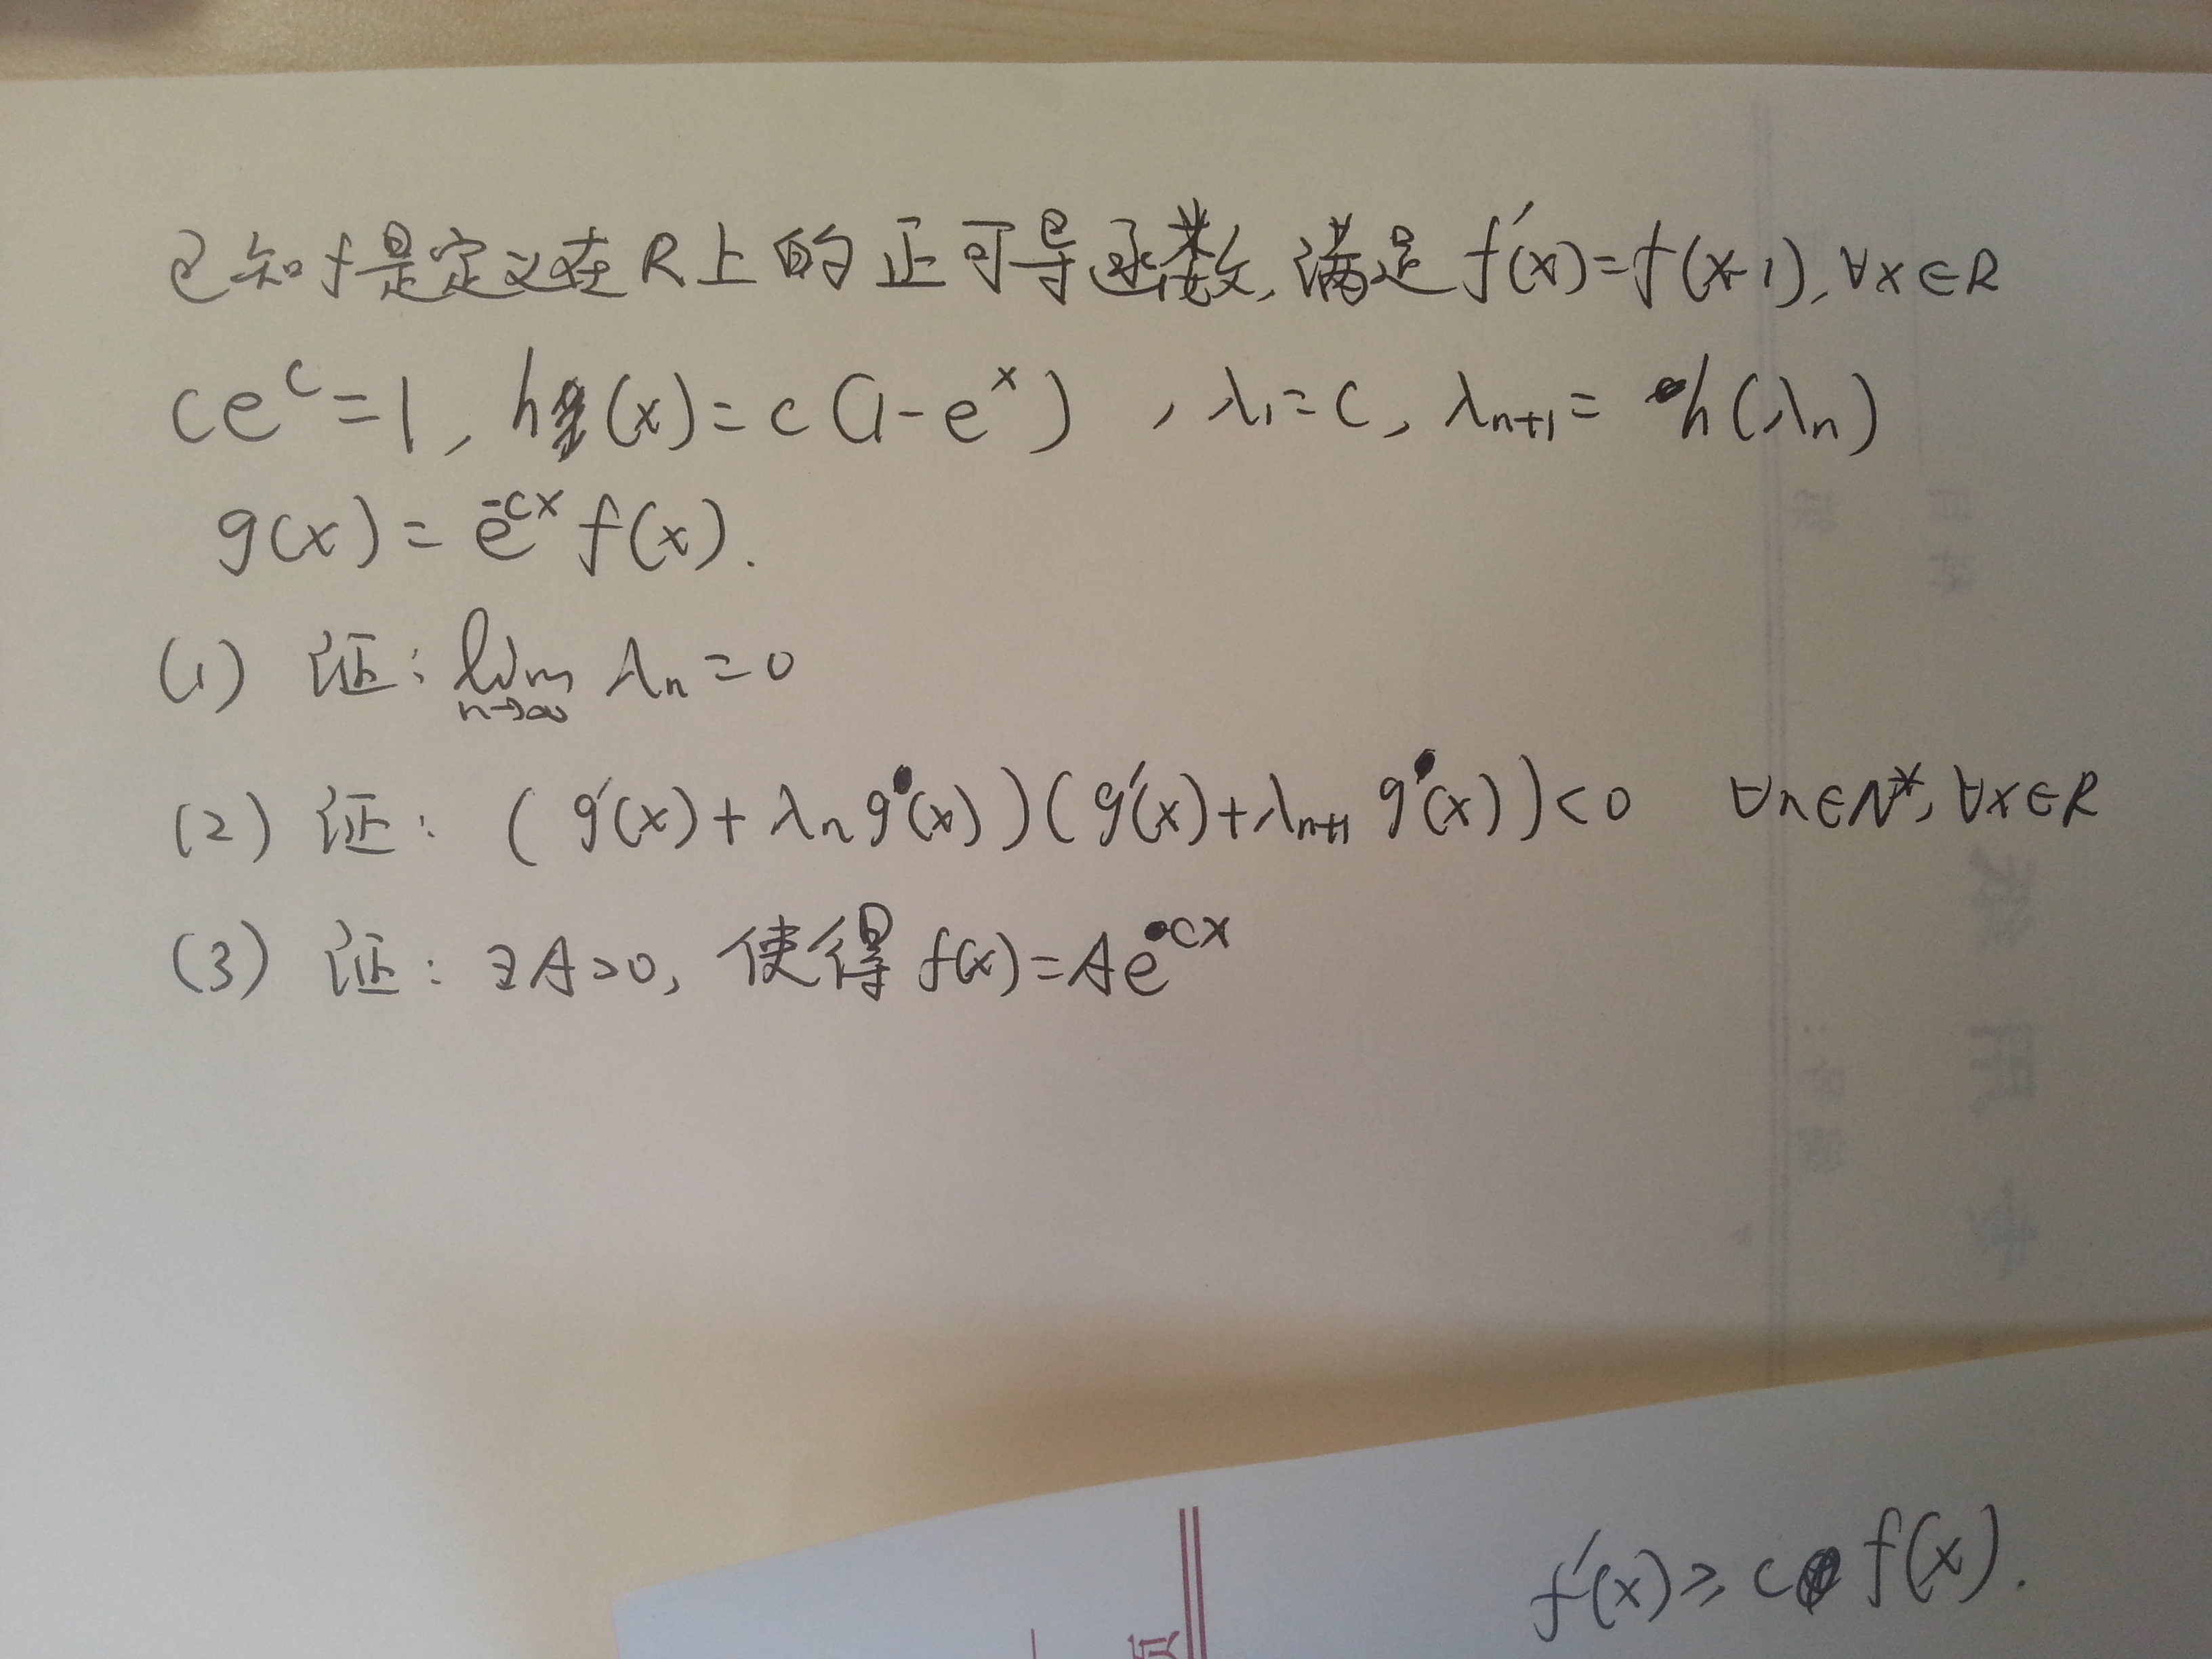 已知f是定义在R上的正可导函数,满足f′(x)=f(x-1),∀x∈R
ce^c=1, h(x)=c(1-e^x), λ₁=c, λₙ₊₁=h(λₙ)
g(x)=e^{-cx}f(x).
(1) 证: lim_{n→∞} λₙ=0
(2) 证: (g′(x)+λₙg(x))(g′(x)+λₙ₊₁g(x))<0 ∀n∈N*,∀x∈R
(3) 证: ∃A>0, 使得f(x)=Ae^{cx}
f′(x)≥cf(x).